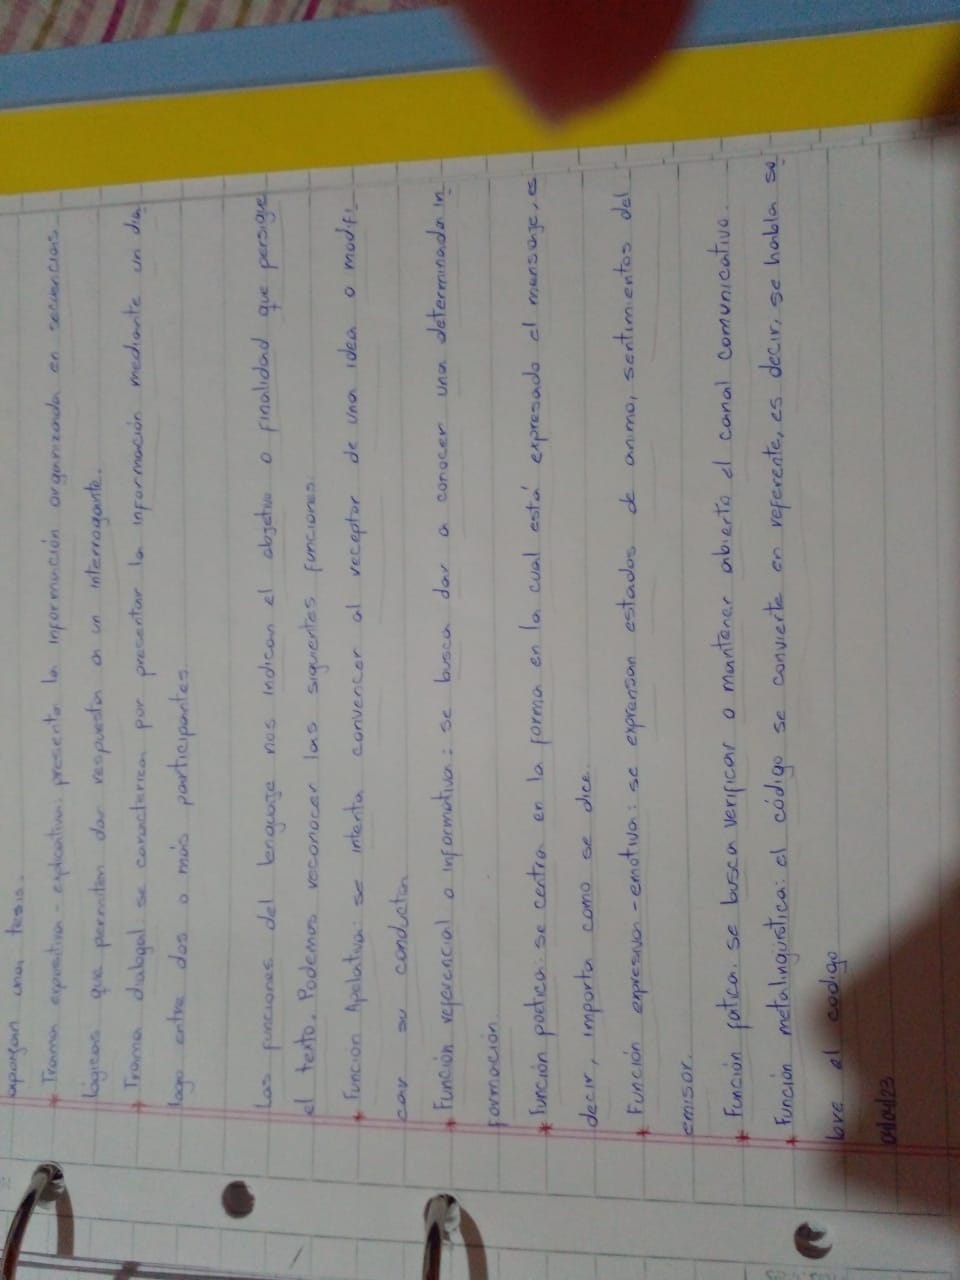 apoyan una tesis.
* Trama expositiva - explicativa: presenta la información organizada en secuencias
lógicas que permiten dar respuesta a un interrogante.
* Trama dialogal: se caracteriza por presentar la información mediante un dia
logo entre dos o más participantes.
Las funciones del lenguaje nos indican el objetivo o finalidad que persigue
el texto. Podemos reconocer las siguientes funciones:
* Función Apelativa: se intenta convencer al receptor de una idea o modifi
car su conducta
* Función referencial o informativa: se busca dar a conocer una determinada in
formación.
* Función poetica: se centra en la forma en la cual está expresado el mensaje, es
decir, importa como se dice.
* Función expresiva - emotiva: se exprensan estados de animo, sentimientos del
emisor.
* Función fatica: se busca verificar o mantener abierto el canal comunicativo.
* Función metalingüística: el código se convierte en referente, es decir, se habla so
bre el codigo
04/04/23